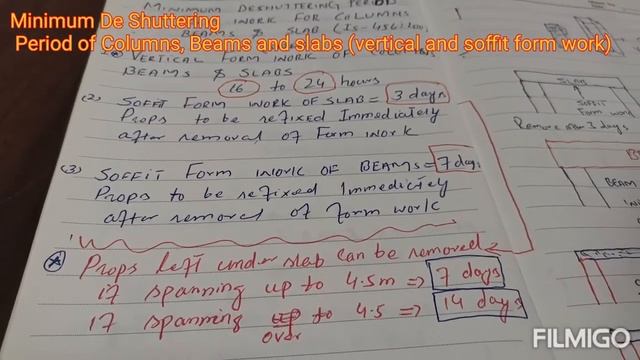 Minimum De Shuttering
Period of Columns, Beams and slabs (vertical and soffit form work)
MINIMUM DESHUTTERING PERIOD
WORK FOR COLUMNS
BEAMS & SLAB (IS-456:200
(1) VERTICAL FORM WORK OF COLUMNS
BEAMS & SLABS
16 to 24 hours
(2) SOFFIT FORM WORK OF SLAB = 3 days
Props to be refixed Immediately
after removal of Form work
(3) SOFFIT Form WORK OF BEAMS = 7 days
Props to be refixed Immedictely
after removal of form work
Props left under slab can be removed
if spanning up to 4.5m => 7 days
if spanning up to 4.5 => 14 days
over
SLAB
SOFFIT
Form work
Remove after 3 days
B
BEAM
IN
FILMIGO